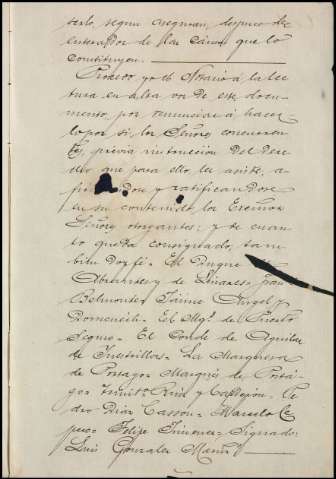 serlo, segun aseguran, despues de
enterados de las causas que lo
constituyen.
Procedo yo el Notario á la lec
tura en alta voz de este docu-
mento, por renunciar á hacer
lo por si, los Señores concurren
tes, previa instruccion del dere
cho que para ello les asiste, a
firmandose y ratificandose
en su contenido, los Excmos
Señores otorgantes; y de cuan
to queda consignado, tam-
bien doy fé. El Duque de
Abrantes y de Linares. Juan
Belmonte. Jaime Angel y
El Mqs. del Puerto
Seguro. El Conde de Aguilar
de Inestrillas. La Marquesa
de Portago. Marqués de Porta
go. y Castejon. Pe
dro Diaz Marcelo Ce
Felipe Jimenez. Signado:
Luis Gonzalez